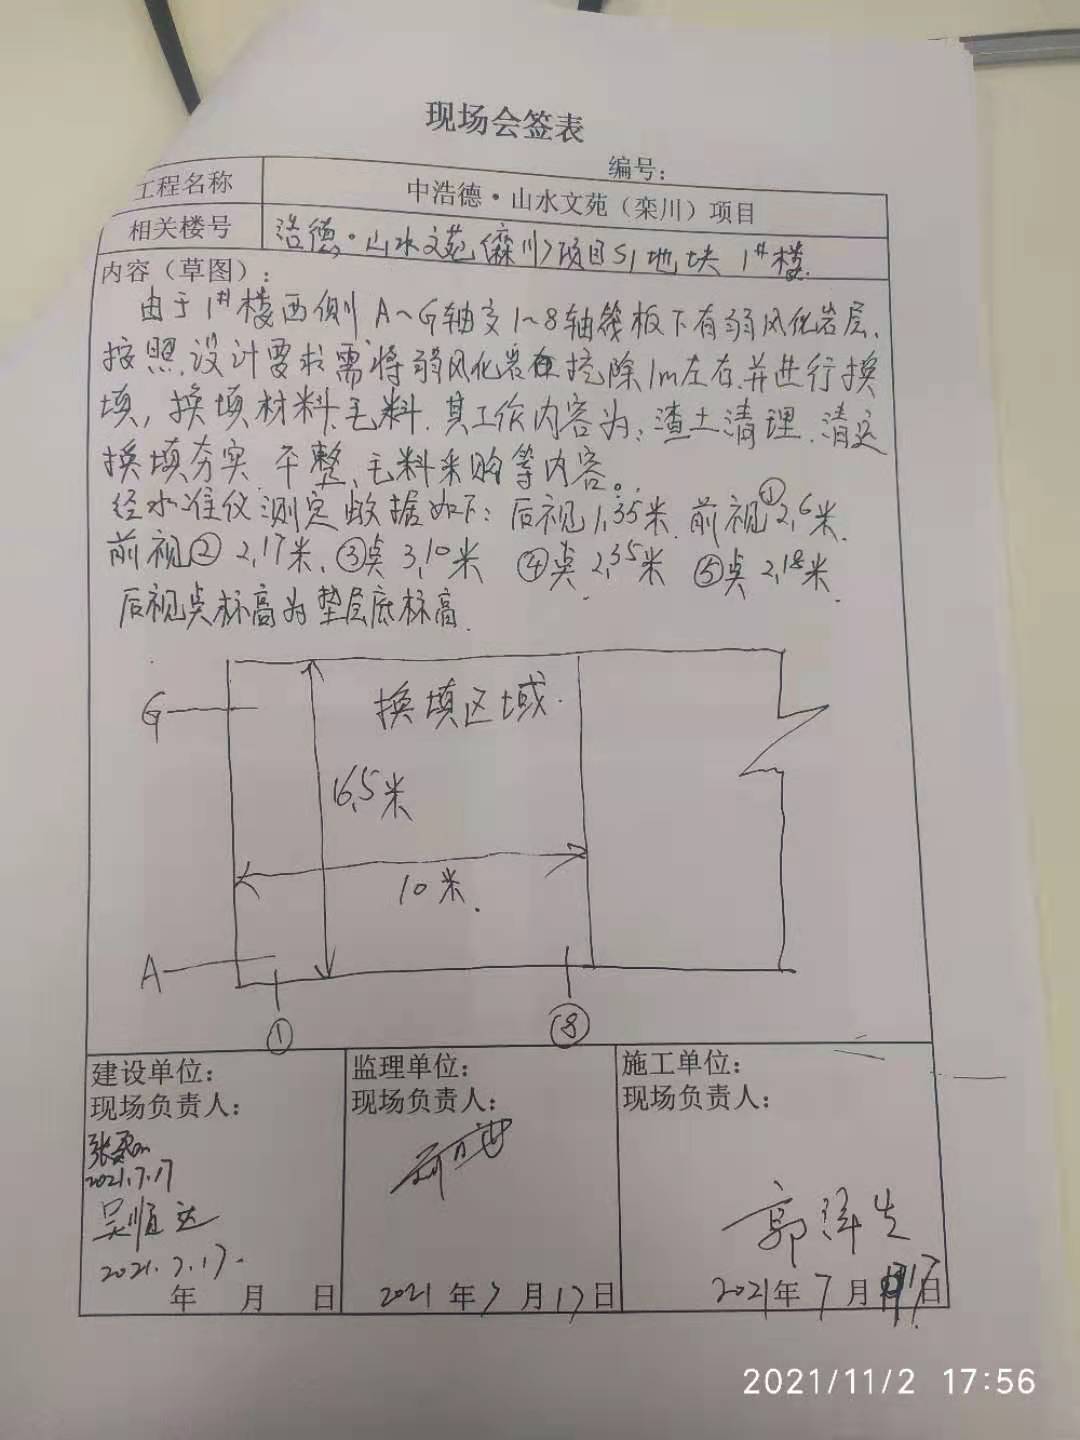 现场会签表
编号：
工程名称 中浩德·山水文苑（栾川）项目
相关楼号 浩德·山水文苑（栾川）项目S1地块 1#楼.
内容（草图）：
由于1#楼西侧A~G轴交1~8轴筏板下有弱风化岩层，
按照设计要求需将弱风化岩在挖除1m左右.并进行换
填，换填材料毛料.其工作内容为：渣土清理.清运
换填夯实.平整、毛料采购等内容。
经水准仪测定数据如下：后视1.35米.前视①2.6米.
前视② 2.17米、③点 3.10米 ④点 2.35米 ⑤点 2.18米.
后视点标高为垫层底标高.
换填区域.
G
16.5米
10米.
A
① ⑧
建设单位： 监理单位： 施工单位：
现场负责人： 现场负责人： 现场负责人：
2021.7.17
吴顺达
郭泽生
2021.7.17.
年 月 日 2021年7月17日 2021年7月17日
2021/11/2 17:56